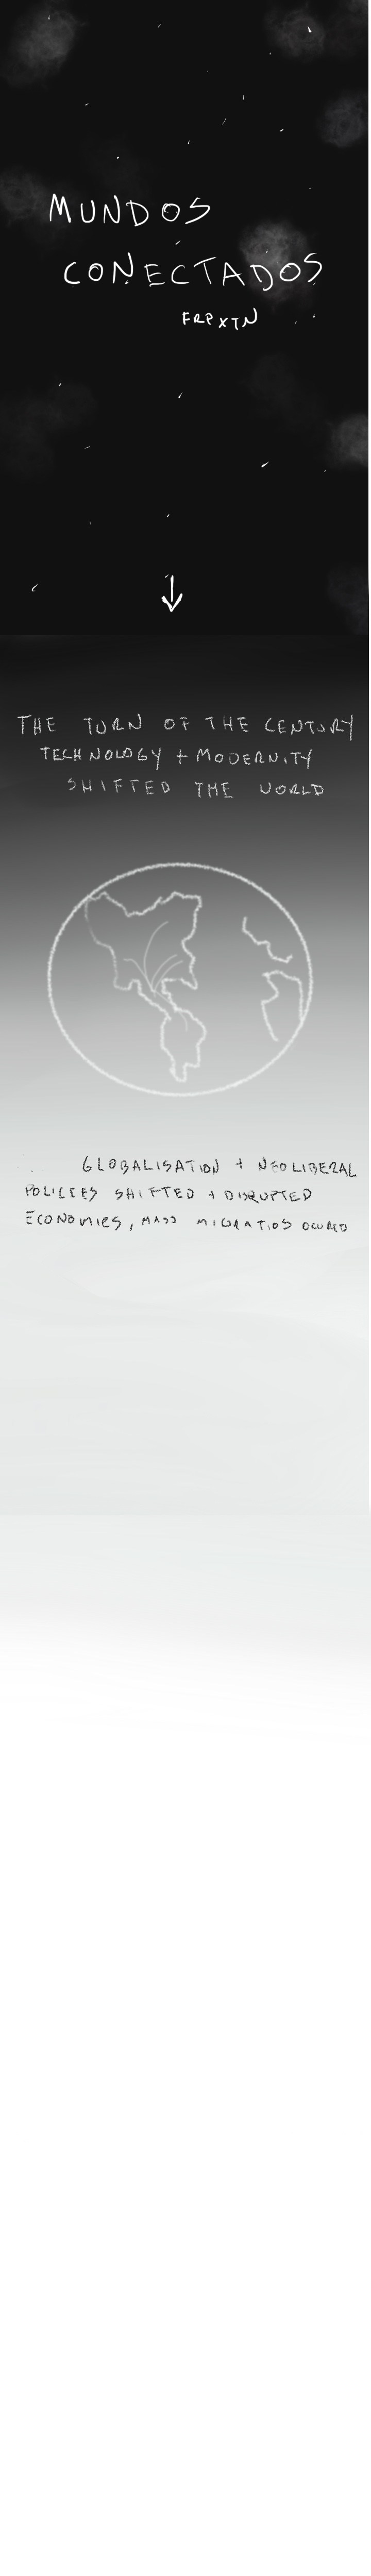 MUNDOS
CONECTADOS
FRPXTN
THE TURN OF THE CENTURY
TECHNOLOGY + MODERNITY
SHIFTED THE WORLD
GLOBALISATION + NEOLIBERAL
POLICIES SHIFTED + DISRUPTED
ECONOMIES, MASS MIGRATIOS OCURED